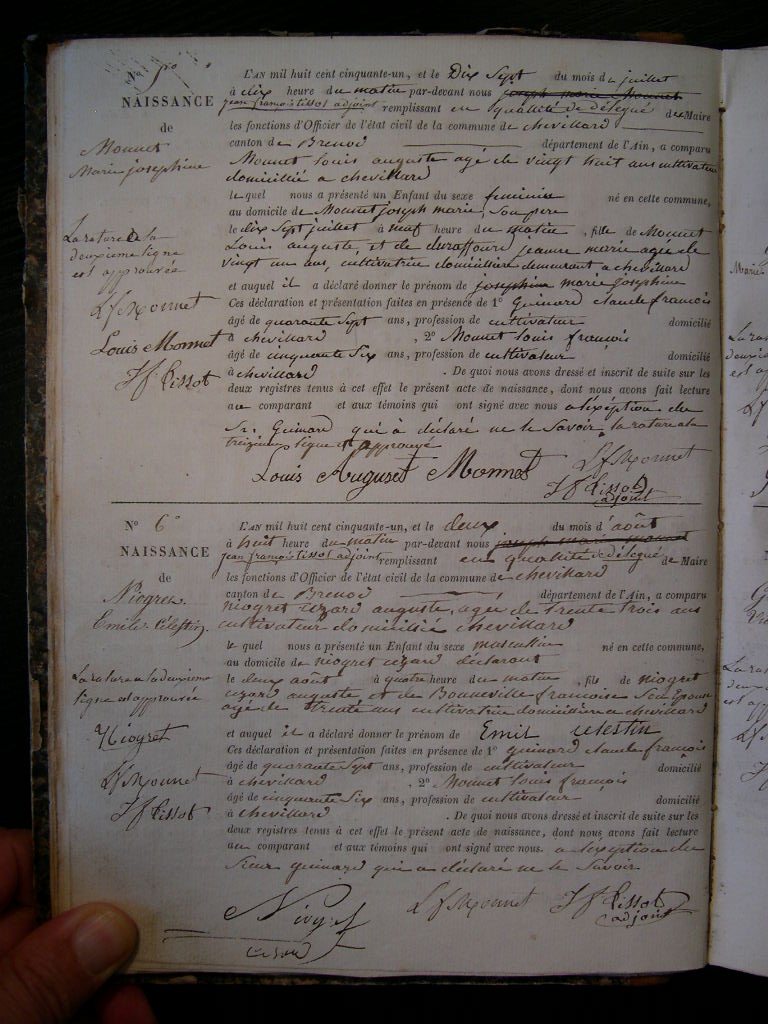 N° 5°
NAISSANCE
de
Monnet
Marie josephine
La rature de la
deuxième ligne
est approuvée
L f Monnet
Louis Monnet
J f Tissot
L'AN mil huit cent cinquante-un, et le Dix Sept du mois de juillet
à dix heure du matin par-devant nous joseph marie Monnet
jean françois tissot adjoint remplissant en qualité de délégué de Maire
les fonctions d'Officier de l'état civil de la commune de chevillard
canton de Brenod département de l'Ain, a comparu
Monnet louis auguste agé de vingt huit ans cultivateur
domicilié a chevillard
le quel nous a présenté un Enfant du sexe feminin né en cette commune,
au domicile de Monnet joseph marie, son père
le dix Sept juillet à neuf heure du matin, fille de Monnet
Louis auguste, et de duraffourd jeanne marie agée de
vingt un ans, cultivatrice domiciliée demeurant a chevillard
et auquel il a déclaré donner le prénom de josephine marie josephine
Ces déclaration et présentation faites en présence de 1° Guinard claude françois
âgé de quarante Sept ans, profession de cultivateur domicilié
à chevillard, 2° Monnet louis françois
âgé de cinquante Six ans, profession de cultivateur domicilié
à chevillard. De quoi nous avons dressé et inscrit de suite sur les
deux registres tenus à cet effet le présent acte de naissance, dont nous avons fait lecture
au comparant et aux témoins qui ont signé avec nous a l'éxéption du
Sr. Guinard qui à déclaré ne le Savoir, la rature de la
treizieme ligne est approuvé
Louis Auguset Monnet
L f Monnet
J f Tissot
adjoint
N° 6°
NAISSANCE
de
Niogret
Emile Celestin
La rature a la deuxieme
ligne est approuvée
Niogret
L f Monnet
J f Tissot
L'AN mil huit cent cinquante-un, et le deux du mois d'août
à huit heure du matin par-devant nous joseph marie monnet
jean françois tissot adjoint remplissant en qualité de délégué de Maire
les fonctions d'Officier de l'état civil de la commune de chevillard
canton de Brenod département de l'Ain, a comparu
niogret cezard auguste, agé de trente trois ans
cultivateur domicilié chevillard
le quel nous a présenté un Enfant du sexe masculin né en cette commune,
au domicile de niogret cezard déclarant
le deux août à quatre heure du matin, fils de niogret
cezard auguste et de Bonneville françoise Son Epouse
agé de trente ans cultivatrice domiciliée a chevillard
et auquel il a déclaré donner le prénom de Emil celestin
Ces déclaration et présentation faites en présence de 1° guinard claude françois
âgé de quarante Sept ans, profession de cultivateur domicilié
à chevillard, 2° Monnet louis françois
âgé de cinquante Six ans, profession de cultivateur domicilié
à chevillard. De quoi nous avons dressé et inscrit de suite sur les
deux registres tenus à cet effet le présent acte de naissance, dont nous avons fait lecture
au comparant et aux témoins qui ont signé avec nous. a l'éxéption du
Sieur guinard qui a déclaré ne le Savoir
Niogret
L f Monnet
J f Tissot
adjoint